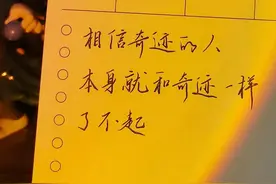 相信奇迹的人
本身就和奇迹一样
了不起